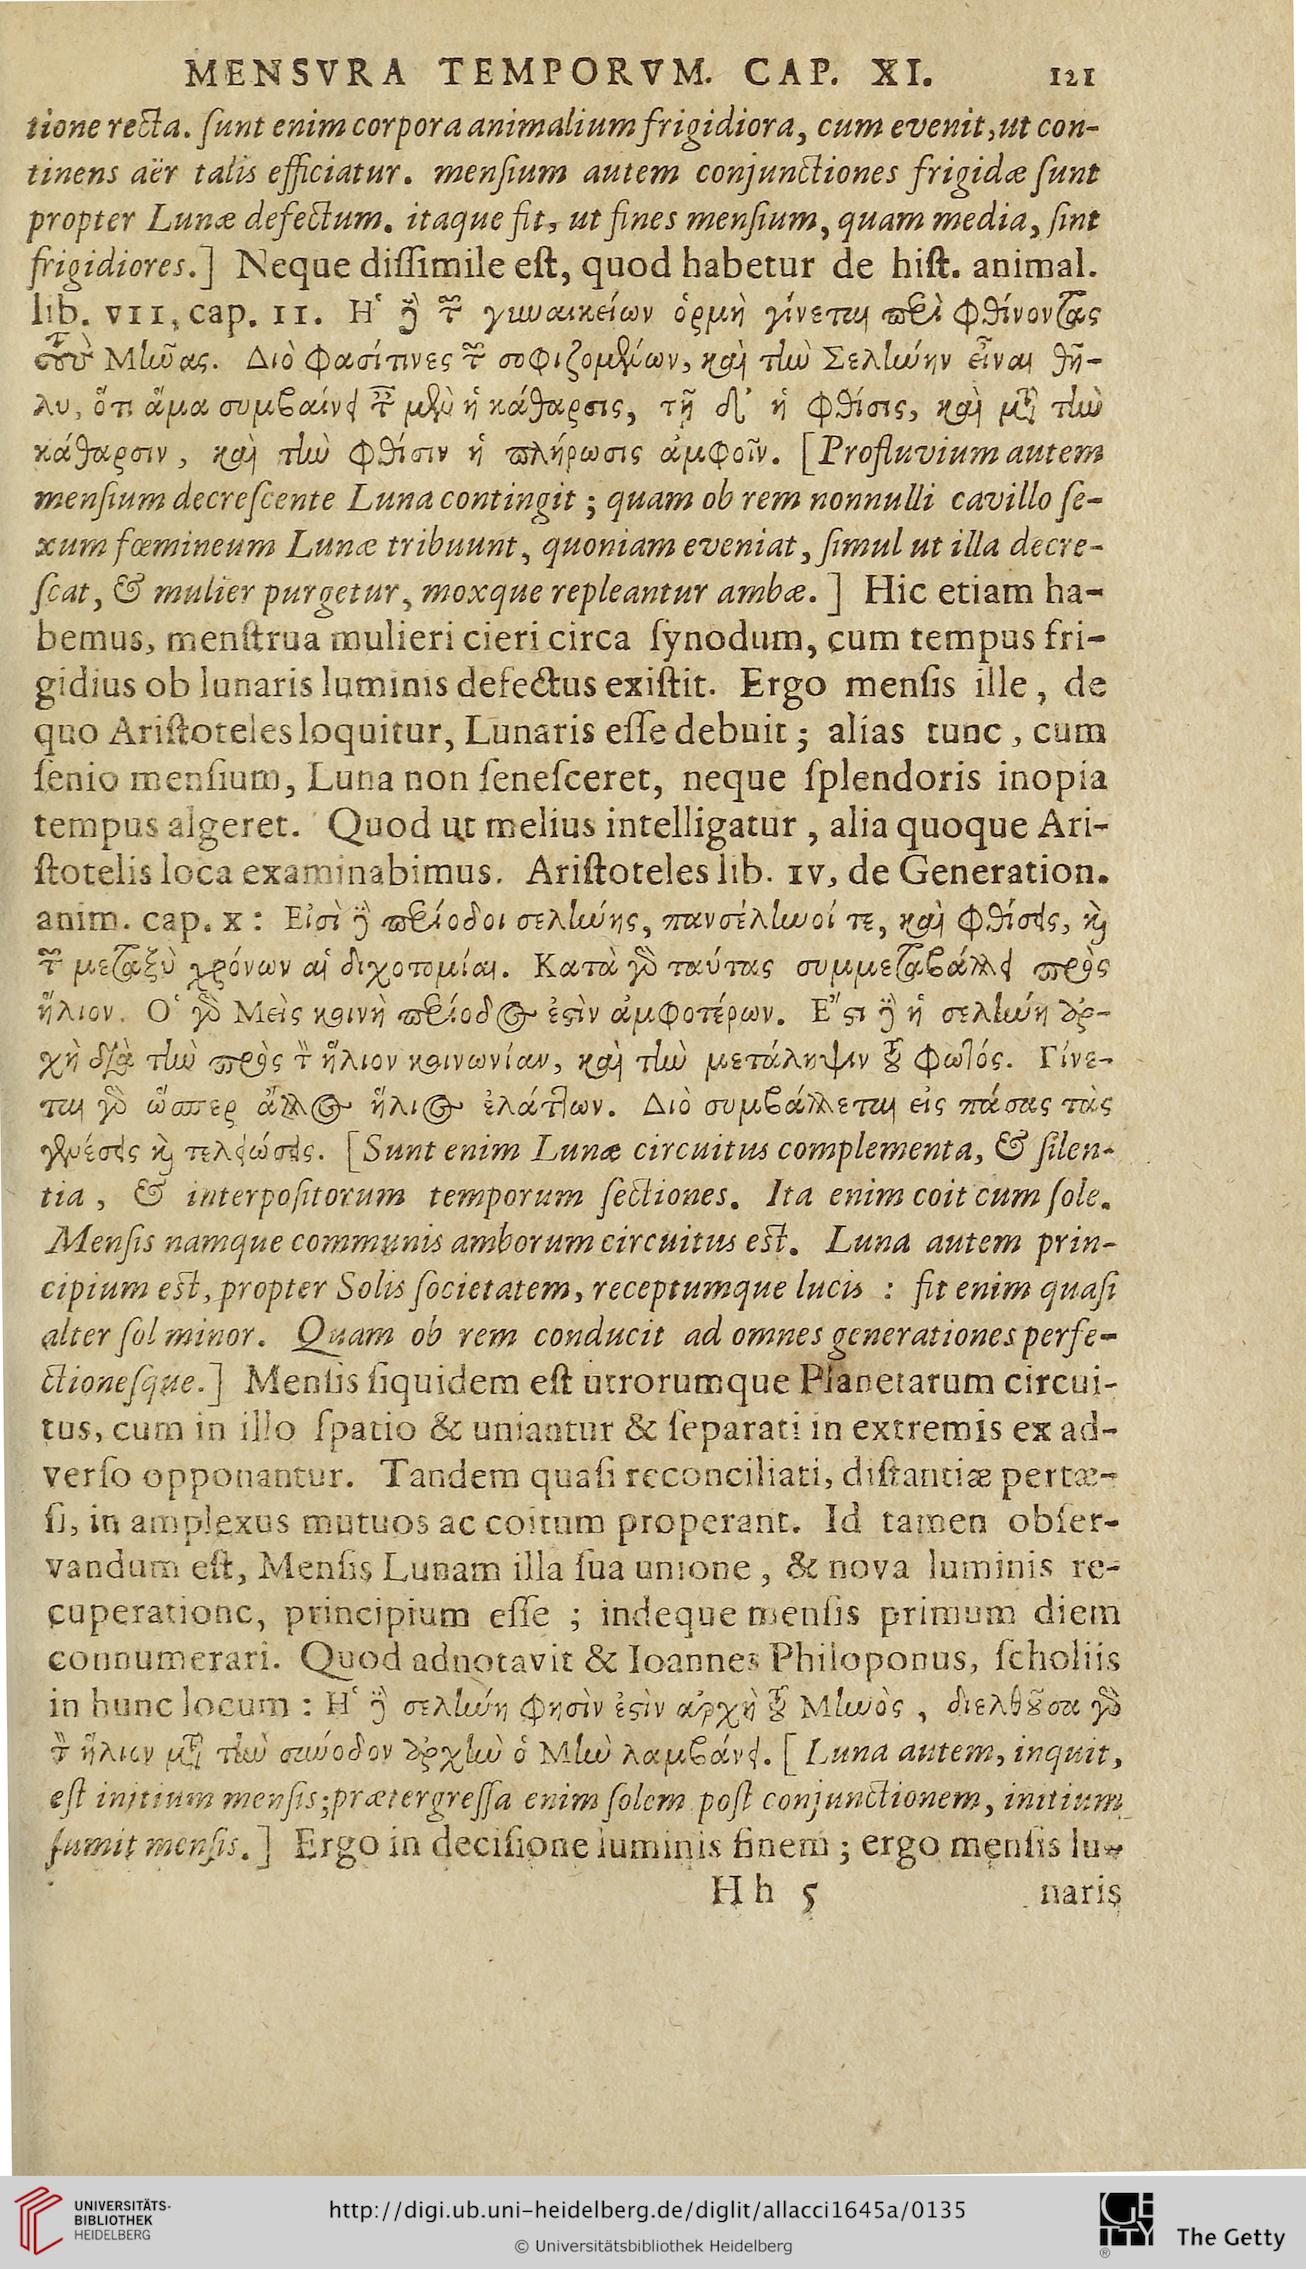 MENSVRA TEMPORVM. CAP. XI. 121
tione recta. ſunt enim corpora animalium frigidiora, cum evenit, ut con-
tinens aër talis efficiatur. menſium autem conjunctiones frigidæ ſunt
propter Lunæ defectum. itaque fit, ut fines menſium, quam media, ſint
frigidiores.] Neque diſſimile eſt, quod habetur de hiſt. animal.
lib. VII, cap. II. Ἡ δὲ τῶν γυναικείων ὁρμὴ γίνεται περὶ φθίνοντας
τοὺς Μῆνας. Διὸ φασί τινες τῶν σοφιζομένων, καὶ τὴν Σελήνην εἶναι θῆ-
λυ, ὅτι ἅμα συμβαίνει τῇ μὲν ἡ κάθαρσις, τῇ δ' ἡ φθίσις, καὶ μετὰ τὴν
κάθαρσιν, καὶ τὴν φθίσιν ἡ πλήρωσις ἀμφοῖν. [Profluvium autem
menſium decreſcente Luna contingit; quam ob rem nonnulli cavillo ſe-
xum fœmineum Lunæ tribuunt, quoniam eveniat, ſimul ut illa decre-
ſcat, & mulier purgetur, moxque repleantur ambæ.] Hic etiam ha-
bemus, menſtrua mulieri cieri circa ſynodum, cum tempus fri-
gidius ob lunaris luminis defectus exiſtit. Ergo menſis ille, de
quo Ariſtoteles loquitur, Lunaris eſſe debuit; alías tunc, cum
ſenio menſium, Luna non ſeneſceret, neque ſplendoris inopia
tempus algeret. Quod ut melius intelligatur, alia quoque Ari-
ſtotelis loca examinabimus. Ariſtoteles lib. IV, de Generation.
anim. cap. X: Εἰσὶ δὲ περίοδοι σελήνης, πανσέληνοί τε, καὶ φθίσεις, καὶ
τῶν μεταξὺ χρόνων αἱ διχοτομίαι. Κατὰ γὰρ ταύτας συμμεταβάλλει πρὸς
ἥλιον. Ὁ γὰρ Μεὶς κοινὴ περίοδος ἐστὶν ἀμφοτέρων. Ἔστι δὲ ἡ σελήνη ἀρ-
χὴ διὰ τὴν πρὸς τὸν ἥλιον κοινωνίαν, καὶ τὴν μετάληψιν τοῦ φωτός. Γίνε-
ται γὰρ ὥσπερ ἄλλος ἥλιος ἐλάττων. Διὸ συμβάλλεται εἰς πάσας τὰς
γενέσεις καὶ τελειώσεις. [Sunt enim Lunæ circuitus complementa, & ſilen-
tia, & interpoſitorum temporum ſectiones. Ita enim coit cum ſole.
Menſis namque communis amborum circuitus est. Luna autem prin-
cipium est, propter Solis ſocietatem, receptumque lucis : fit enim quaſi
alter ſol minor. Quam ob rem conducit ad omnes generationes perfe-
ctioneſque.] Menſis ſiquidem eſt utrorumque Planetarum circui-
tus, cum in illo ſpatio & uniantur & ſeparati in extremis ex ad-
verſo opponantur. Tandem quaſi reconciliati, diſtantiæ pertæ-
ſi, in amplexus mutuos ac coitum properant. Id tamen obſer-
vandum eſt, Menſis Lunam illa ſua unione, & nova luminis re-
cuperatione, principium eſſe ; indeque menſis primum diem
connumerari. Quod adnotavit & Ioannes Philoponus, ſcholiis
in hunc locum : Ἡ δὲ σελήνη φησὶν ἐστὶν ἀρχὴ τοῦ Μηνὸς, διελθοῦσα γὰρ
τὸν ἥλιον μετὰ τὴν σύνοδον ἀρχὴν ὁ Μὴν λαμβάνει. [Luna autem, inquit,
eſt initium menſis; prætergreſſa enim ſolem poſt conjunctionem, initium
ſumit menſis.] Ergo in deciſione luminis finem; ergo menſis lu-
H h 5 naris
UNIVERSITÄTS-
BIBLIOTHEK
HEIDELBERG
http://digi.ub.uni-heidelberg.de/diglit/allacci1645a/0135
© Universitätsbibliothek Heidelberg
GETTY
The Getty